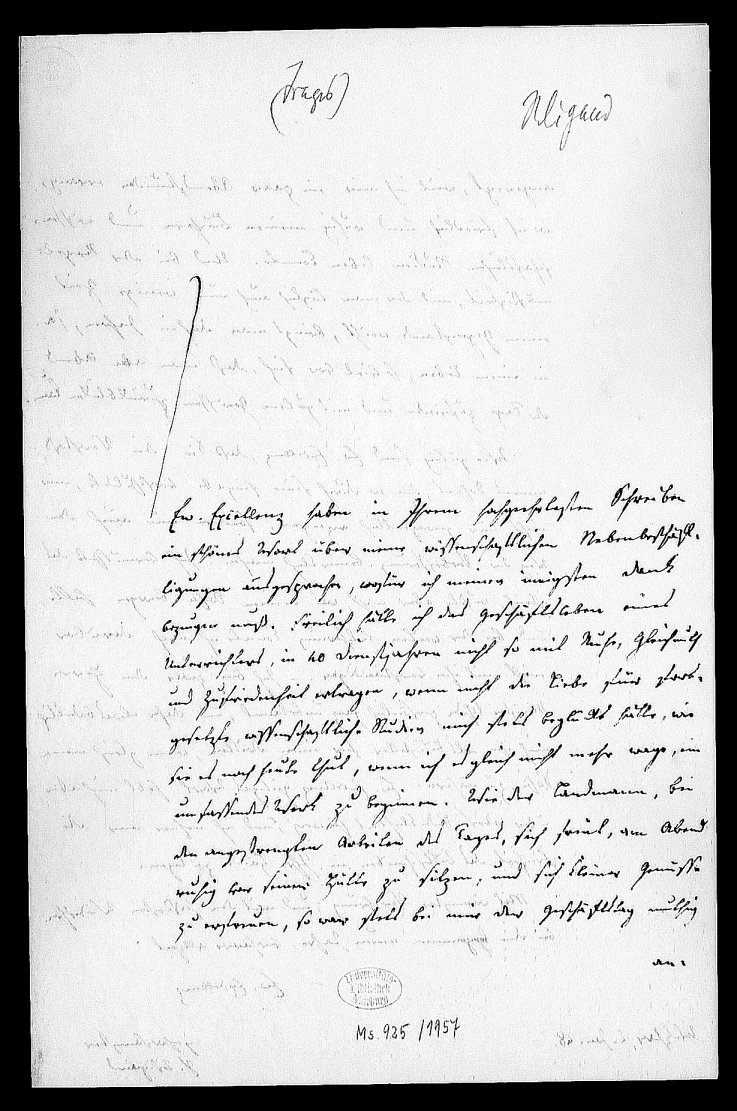 (Dragb)
Wigand
Ew. Excellenz haben in Ihrem hochgeehrtesten Schreiben
ein schönes Wort über meine wissenschaftlichen Nebenbeschäf-
tigungen ausgesprochen, wofür ich meinen innigsten Dank
bezeugen muß. Freilich hätte ich das Geschäftsleben eines
Unterrichters, in 40 Dienstjahren nicht so mit Ruhe, Gleichmuth
und Zufriedenheit ertragen, wenn nicht die Liebe für fort-
gesetzte wissenschaftliche Studien mich stets beglückt hätte, wie
sie es noch heute thut, wenn ich es gleich nicht mehr wage, ein
umfassendes Werk zu beginnen. Wie der Landmann, bei
den angestrengten Arbeiten des Tages, sich freut, am Abend
ruhig vor seiner Hütte zu sitzen, und sich kleiner Genüsse
zu erfreuen, so war stets bei mir der Geschäftstag muthig
an-
Universitäts-
Bibliothek
Marburg
Ms. 925/1957